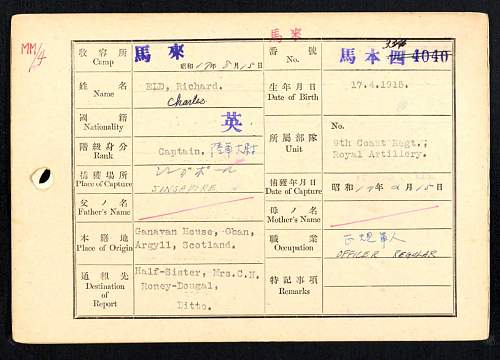 MM/4
馬來
收容所
Camp
馬來
昭和17年8月15日
番號
No.
馬本 四 4040
姓名
Name
ELD, Richard.
Charles
生年月日
Date of Birth
17.4.1915.
國籍
Nationality
英
所屬部隊
Unit
No.
9th Coast Regt.;
Royal Artillery.
階級身分
Rank
Captain. 陸軍大尉
捕獲場所
Place of Capture
シンガポール
SINGAPORE
捕獲年月日
Date of Capture
昭和17年2月15日
父ノ名
Father's Name
母ノ名
Mother's Name
本籍地
Place of Origin
Ganavan House, Oban,
Argyll, Scotland.
職業
Occupation
正規軍人
OFFICER REGULAR
通報先
Destination of
Report
Half-Sister, Mrs.C.N.
Roney-Dougal,
Ditto.
特記事項
Remarks